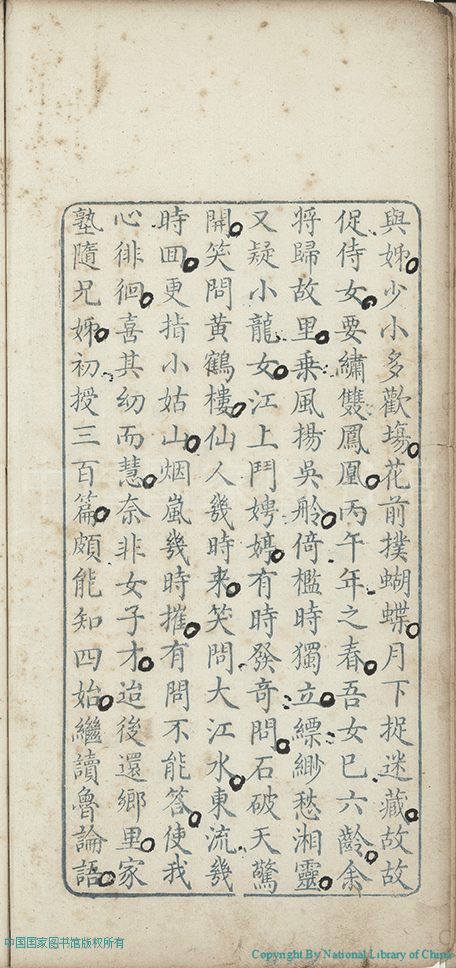 與姊少小多歡塲花前撲蝴蝶月下捉迷藏故故
促侍女要繡雙鳳凰丙午年之春吾女已六齡余
将歸故里乗風揚吳舲倚檻時獨立縹緲愁湘靈
又疑小龍女江上鬥娉婷有時發奇問石破天驚
開笑問黄鶴樓仙人幾時来笑問大江水東流幾
時囬更指小姑山烟嵐幾時摧有問不能答使我
心徘徊喜其幼而慧奈非女子才迨後還鄉里家
塾隨兄姊初授三百篇頗能知四始繼讀魯論語
中国国家图书馆版权所有
Copyright By National Library of China